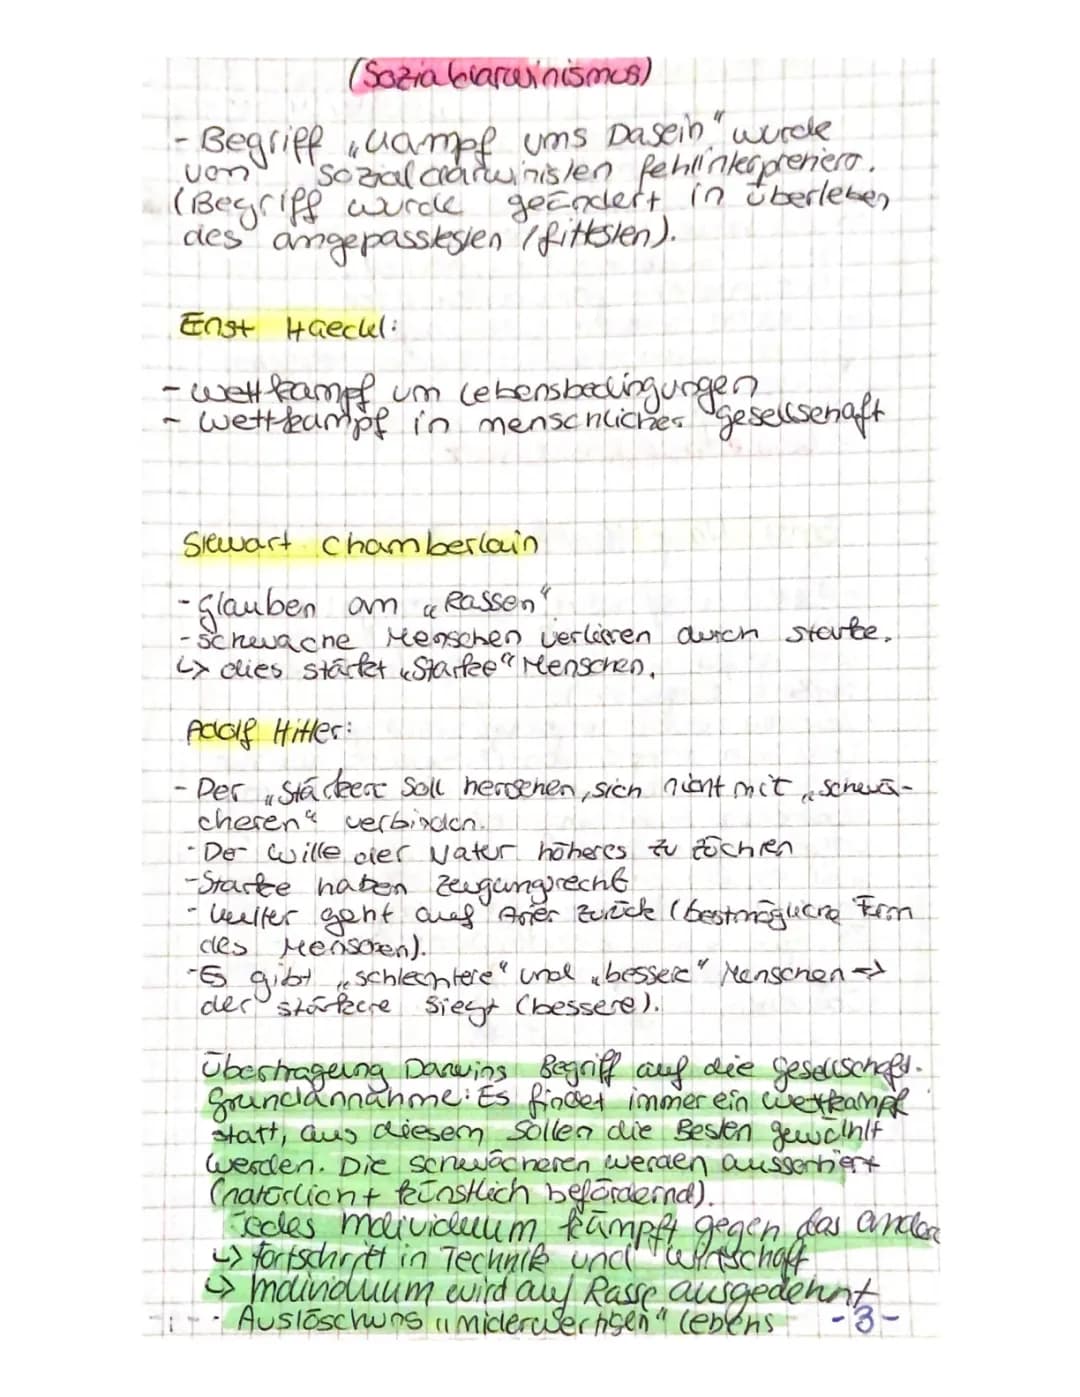 (Sozialdarwinismus)
- Begriff „Kampf ums Dasein" wurde
von Sozialdarwinisten fehlinterpretiert.
(Begriff wurde geändert in überleben
des angepasstesten / fittesten).
Enst Haeckel:
- Wettkampf um Lebensbedingungen
- Wettkampf in menschlicher Gesellschaft
Stewart Chamberlain
- Glauben an „Rassen"
- schwache Menschen verlieren durch starke.
↳ dies stärkt „Starke" Menschen.
Adolf Hitler:
- Der „Stärkere soll herrschen, sich nicht mit „schwä-
cheren" verbinden.
- Der Wille der Natur höheres zu züchten
- Starke haben Zeugungsrecht
- Kultur geht auf Arier zurück (bestmögliche Form
des Menschen).
- Es gibt „schlechtere" und „bessere" Menschen →
der stärkere siegt (bessere).
Übertragung Darwins Begriff auf die Gesellschaft.
Grundannahme: Es findet immer ein Wettkampf
statt, aus diesem sollen die Besten gewählt
werden. Die schwächeren werden aussortiert
(natürlich + künstlich befördernd).
Jedes Individuum kämpft gegen das andere
↳ Fortschritt in Technik und Wirtschaft
↳ Individuum wird auf Rasse ausgedehnt
- Auslöschung „miderwertigen" Lebens -3-